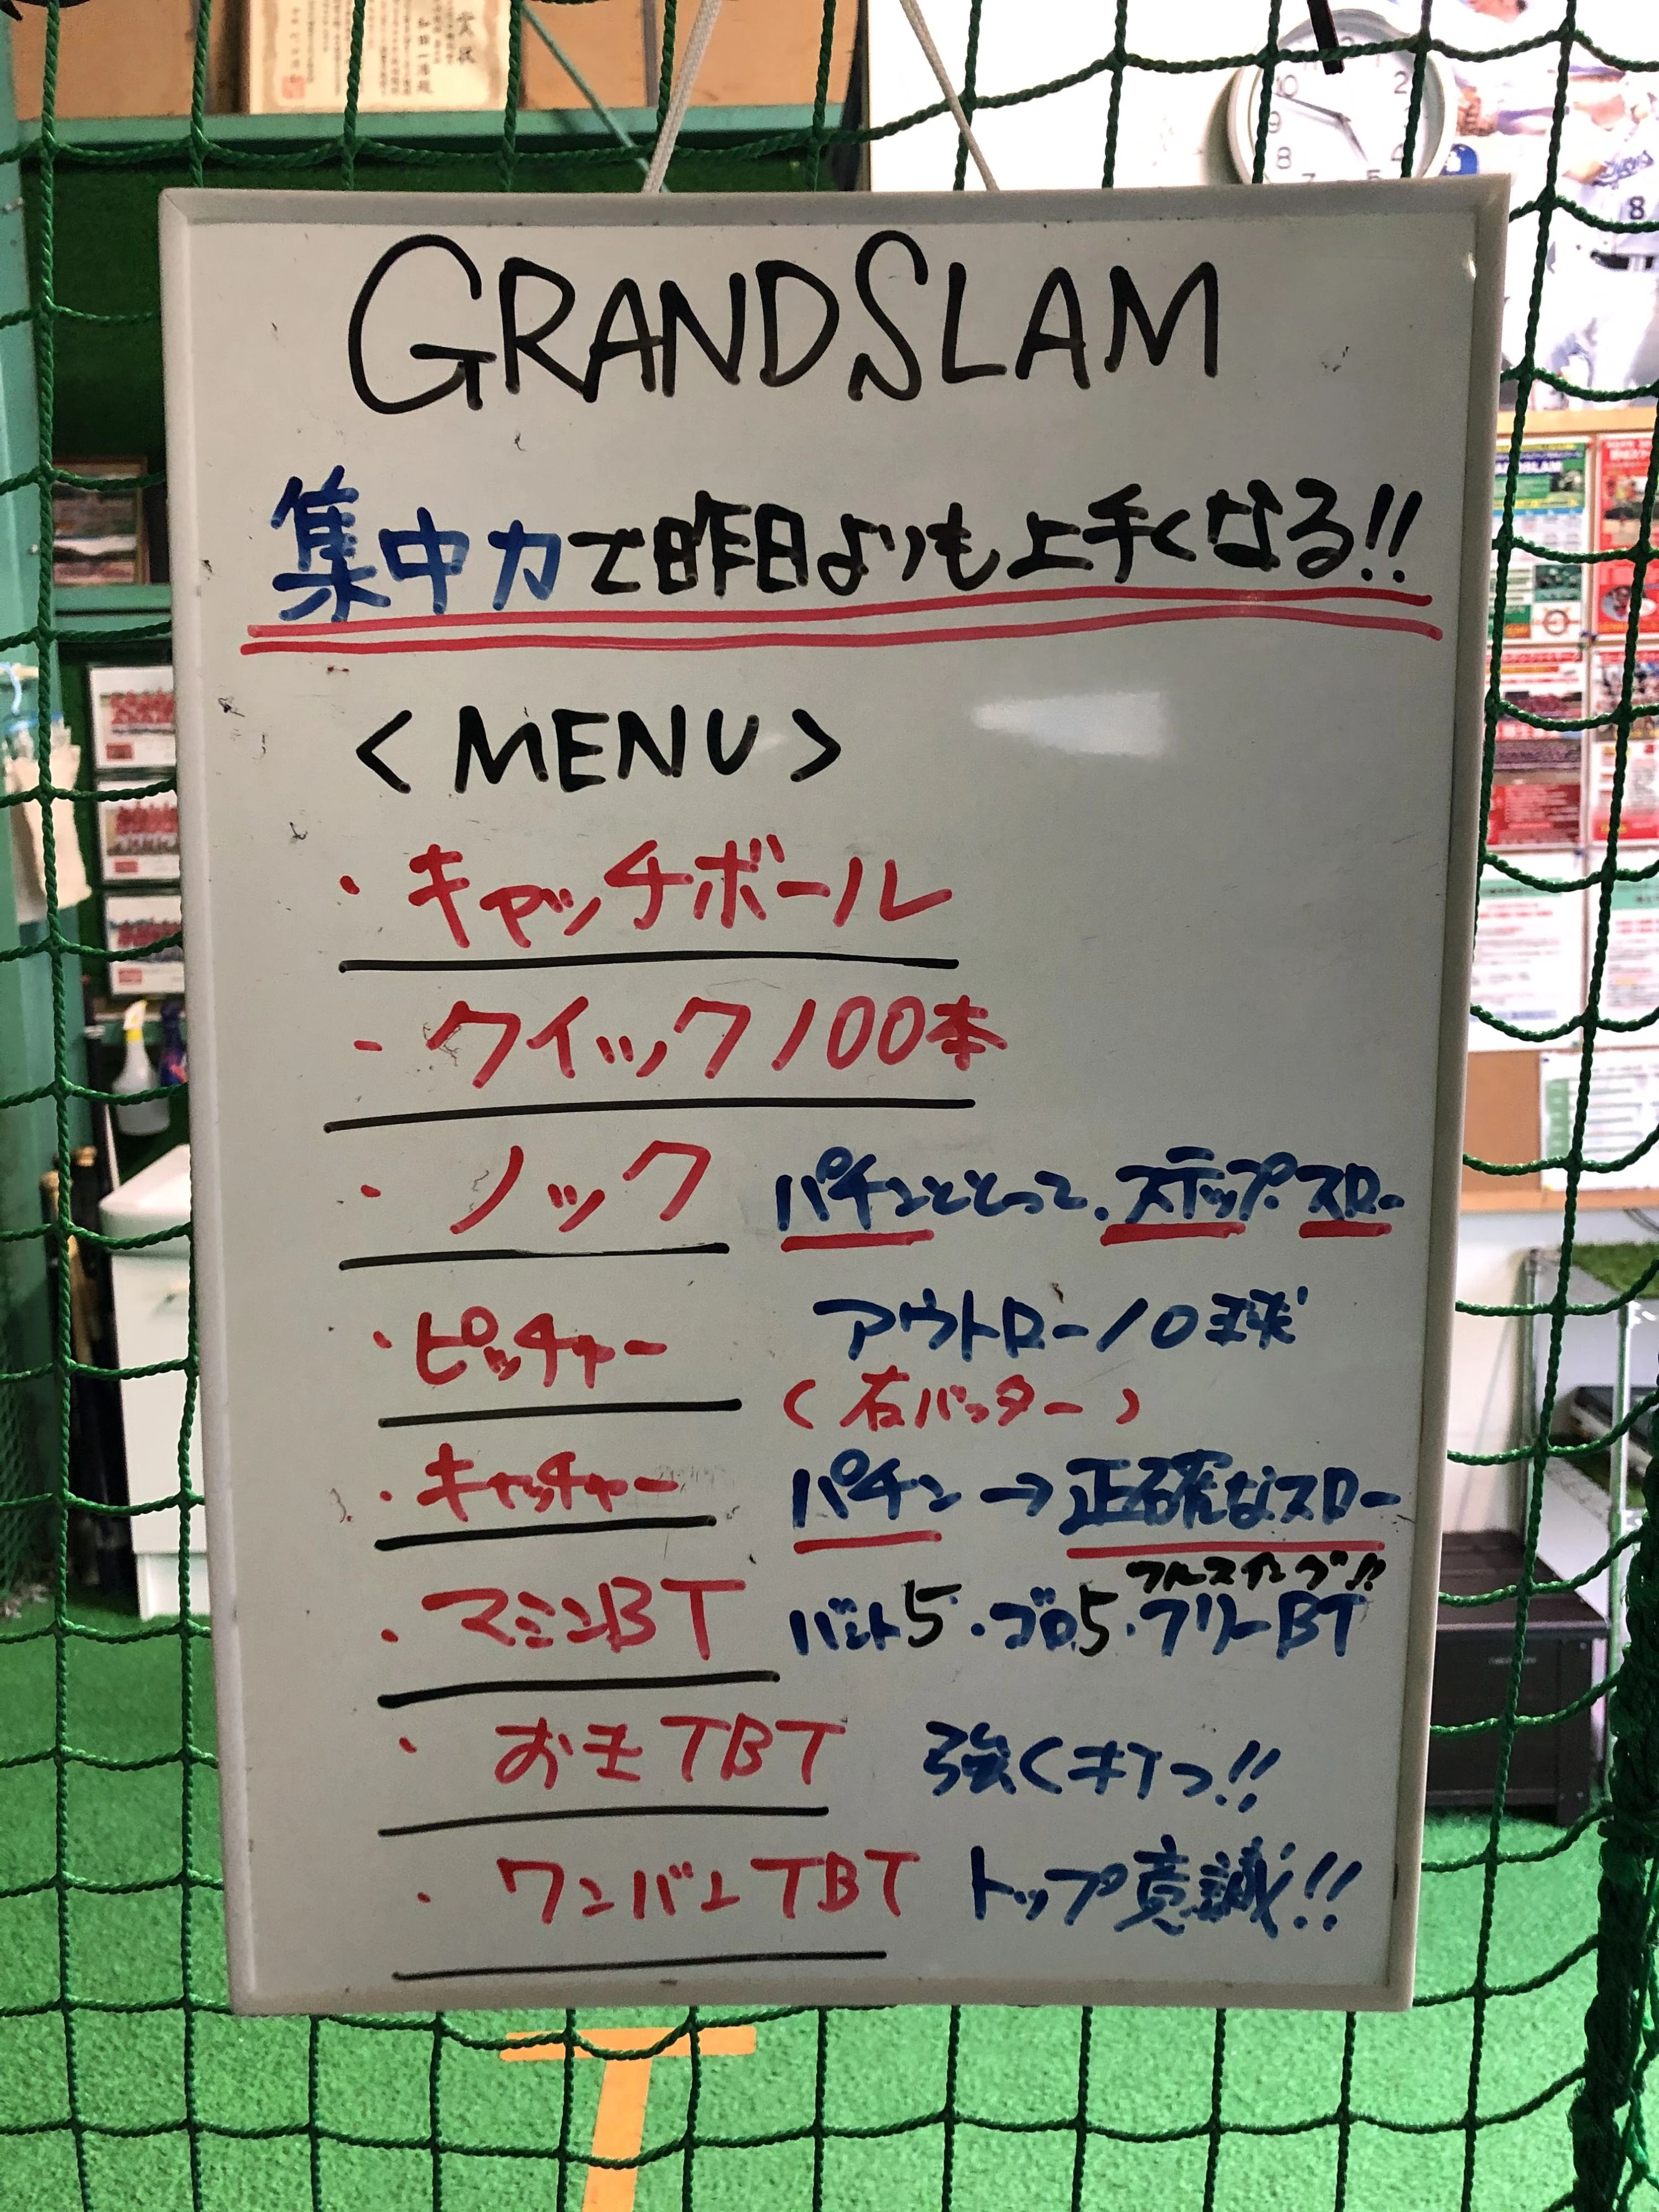 賞状
GRANDSLAM
集中力で昨日よりも上手くなる!!
<MENU>
・キャッチボール
・クイック100本
・ノック パチンととって、ステップスロー
・ピッチャー アウトロー10球
(右バッター)
・キャッチャー パチン→正確なスロー
フルスイング!!
・マシンBT バント5・ゴロ5・フリーBT
・おもTBT 強く打つ!!
・ワンバンTBT トップ意識!!